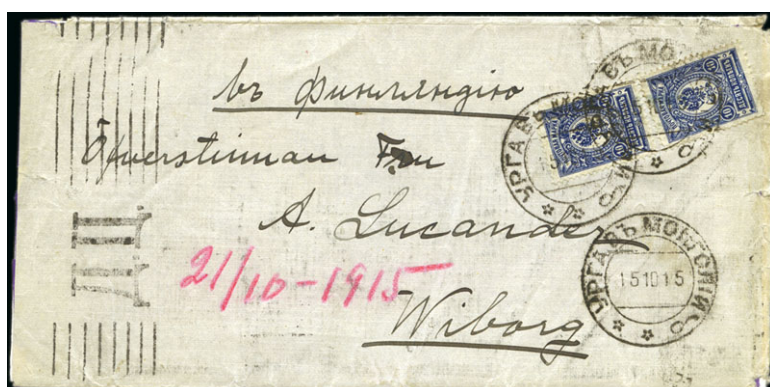 въ Финляндію
Öfverstinnan Fru
A. Lucander
21/10-1915
Wiborg
Д.Ц.
УРГА ВЪ МОНГОЛІИ
15 10 15
УРГА ВЪ МОНГОЛІИ
УРГА ВЪ МО
10
10